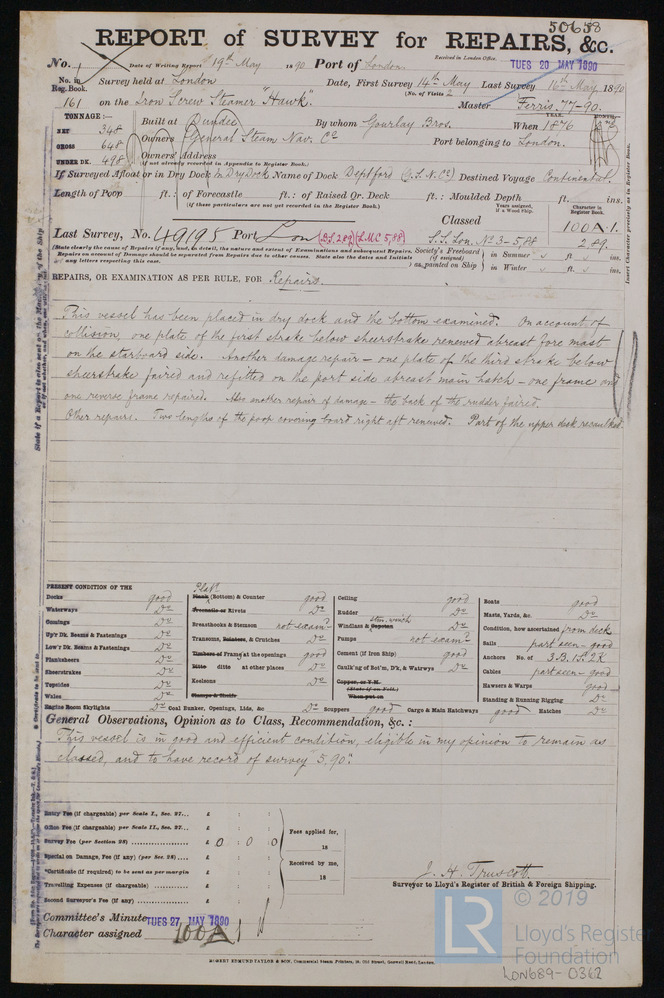 50658
REPORT of SURVEY for REPAIRS, &c.
No. Date of Writing Report 19th May 1890 Port of London Received in London Office TUES 20 MAY 1890
No. in Reg. Book. Survey held at London Date, First Survey 14th May Last Survey 16th May 1890
(No. of Visits 2)
161 on the Iron Screw Steamer "Hawk". Master Ferris. 77-90.
TONNAGE:— Built at Dundee By whom Gourlay Bros. When 1876
YEAR. MONTH.
NET 348
GROSS 648 Owners General Steam Nav. Co Port belonging to London.
UNDER DK. 498 Owners' Address
(if not already recorded in Appendix to Register Book.)
If Surveyed Afloat or in Dry Dock In Dry Dock Name of Dock Deptford (G.S.N.Co) Destined Voyage Continental.
Length of Poop ft.: of Forecastle ft.: of Raised Qr. Deck ft.: Moulded Depth ft. ins.
(if these particulars are not yet recorded in the Register Book.)
Classed
Years assigned, if a Wood Ship.
Character in Register Book.
100A.1.
Last Survey, No. 49195 Port Lon (S.S. 2.89) (LMC 5,88) S.S. Lon. No 3-5,88 2.89.
(State clearly the cause of Repairs if any, and, in detail, the nature and extent of Examinations and subsequent Repairs.
Repairs on account of Damage should be separated from Repairs due to other causes. State also the dates and Initials of any letters respecting this case.
Society's Freeboard (if assigned) as painted on Ship in Summer ft. ins.
in Winter ft. ins.
REPAIRS, OR EXAMINATION AS PER RULE, FOR Repairs.
This vessel has been placed in dry dock and the bottom examined. On account of
collision, one plate of the first strake below sheerstrake renewed abreast fore mast
on the starboard side. Another damage repair – one plate of the third strake below
sheerstrake faired and refitted on the port side abreast main hatch – one frame and
one reverse frame repaired. Also another repair of damage – the back of the rudder faired.
Other repairs. Two lengths of the poop covering board right aft renewed. Part of the upper deck recaulked.
PRESENT CONDITION OF THE
Decks good
Waterways Do
Comings Do
Up'r Dk. Beams & Fastenings Do
Low'r Dk. Beams & Fastenings Do
Planksheers Do
Sheerstrakes Do
Topsides Do
Wales Do
Engine Room Skylights Do
Plate
Plank (Bottom) & Counter good
Treenails or Rivets Do
Breasthooks & Stemson not examd
Transons, Pointers, & Crutches Do
Timbers of Frame at the openings good
Ditto ditto at other places Do
Keelsons Do
Clamps & Shelfs
Coal Bunker, Openings, Lids, &c Do
Ceiling good
Rudder Do
Windlass & Capstan steam winch Do
Pumps not examd
Cement (if Iron Ship) good
Caulk'ng of Bot'm, D'k, & Watrwys Do
Copper, or Y.M.
(State if on Felt.)
When put on
Scuppers good
Cargo & Main Hatchways good
Boats good
Masts, Yards, &c. Do
Condition, how ascertained from deck
Sails part seen - good
Anchors No. of 3.B.1.S.2K
Cables part seen - good
Hawsers & Warps good
Standing & Running Rigging Do
Hatches Do
General Observations, Opinion as to Class, Recommendation, &c.:
This vessel is in good and efficient condition, eligible in my opinion to remain as
classed, and to have record of survey 5,90."
Entry Fee (if chargeable) per Scale I., Sec. 27... £ : :
Office Fee (if chargeable) per Scale II., Sec. 27... £ : :
Survey Fee (per Section 28) £ 0 : 0 : 0
Special on Damage, Fee (if any) (per Sec. 28) £ : :
*Certificate (if required) to be sent as per margin £ : :
Travelling Expenses (if chargeable) £ : :
Second Surveyor's Fee (if any) £ : :
Fees applied for,
18
Received by me,
18
J. H. Truscott
Surveyor to Lloyd's Register of British & Foreign Shipping.
Committee's Minute TUES 27 MAY 1890
Character assigned 100A1
ROBERT EDMUND TAYLOR & SON, Commercial Steam Printers, 19, Old Street, Goswell Road, London.
© 2019
LR
Lloyd's Register
Foundation
LON689-0362
Insert Character precisely as in Register Book.